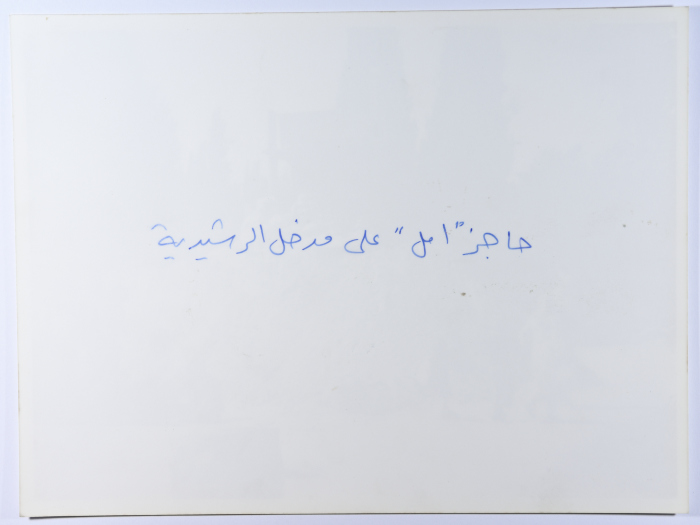 حاجز "امل" على مدخل الرشيدية